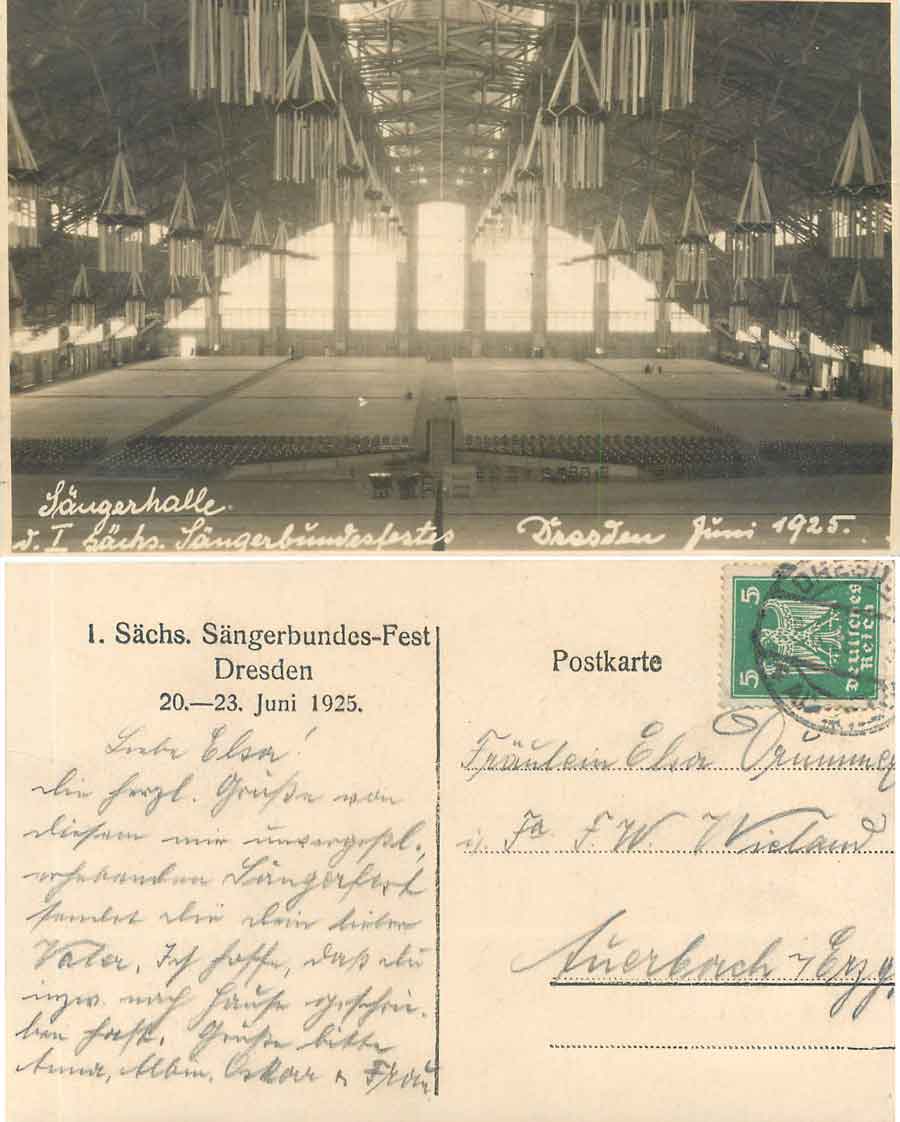 Sängerhalle
d. I Sächs. Sängerbundesfestes Dresden Juni 1925.
1. Sächs. Sängerbundes-Fest
Dresden
20.—23. Juni 1925.
Postkarte
5 5
Deutsches
Reich
DRESD
Liebe Elsa!
die herzl. Grüße von
diesem mir unvergeßl.,
erhebenden Sängerfest
sendet dir dein lieber
Vater. Ich hoffe, daß du
inzw. nach Hause geschrie-
ben hast. Grüße bitte
Anna, Albin, Oskar u Frau
Fräulein Elsa
i/ Fa F. W. Wieland
Auerbach i/Erzg.